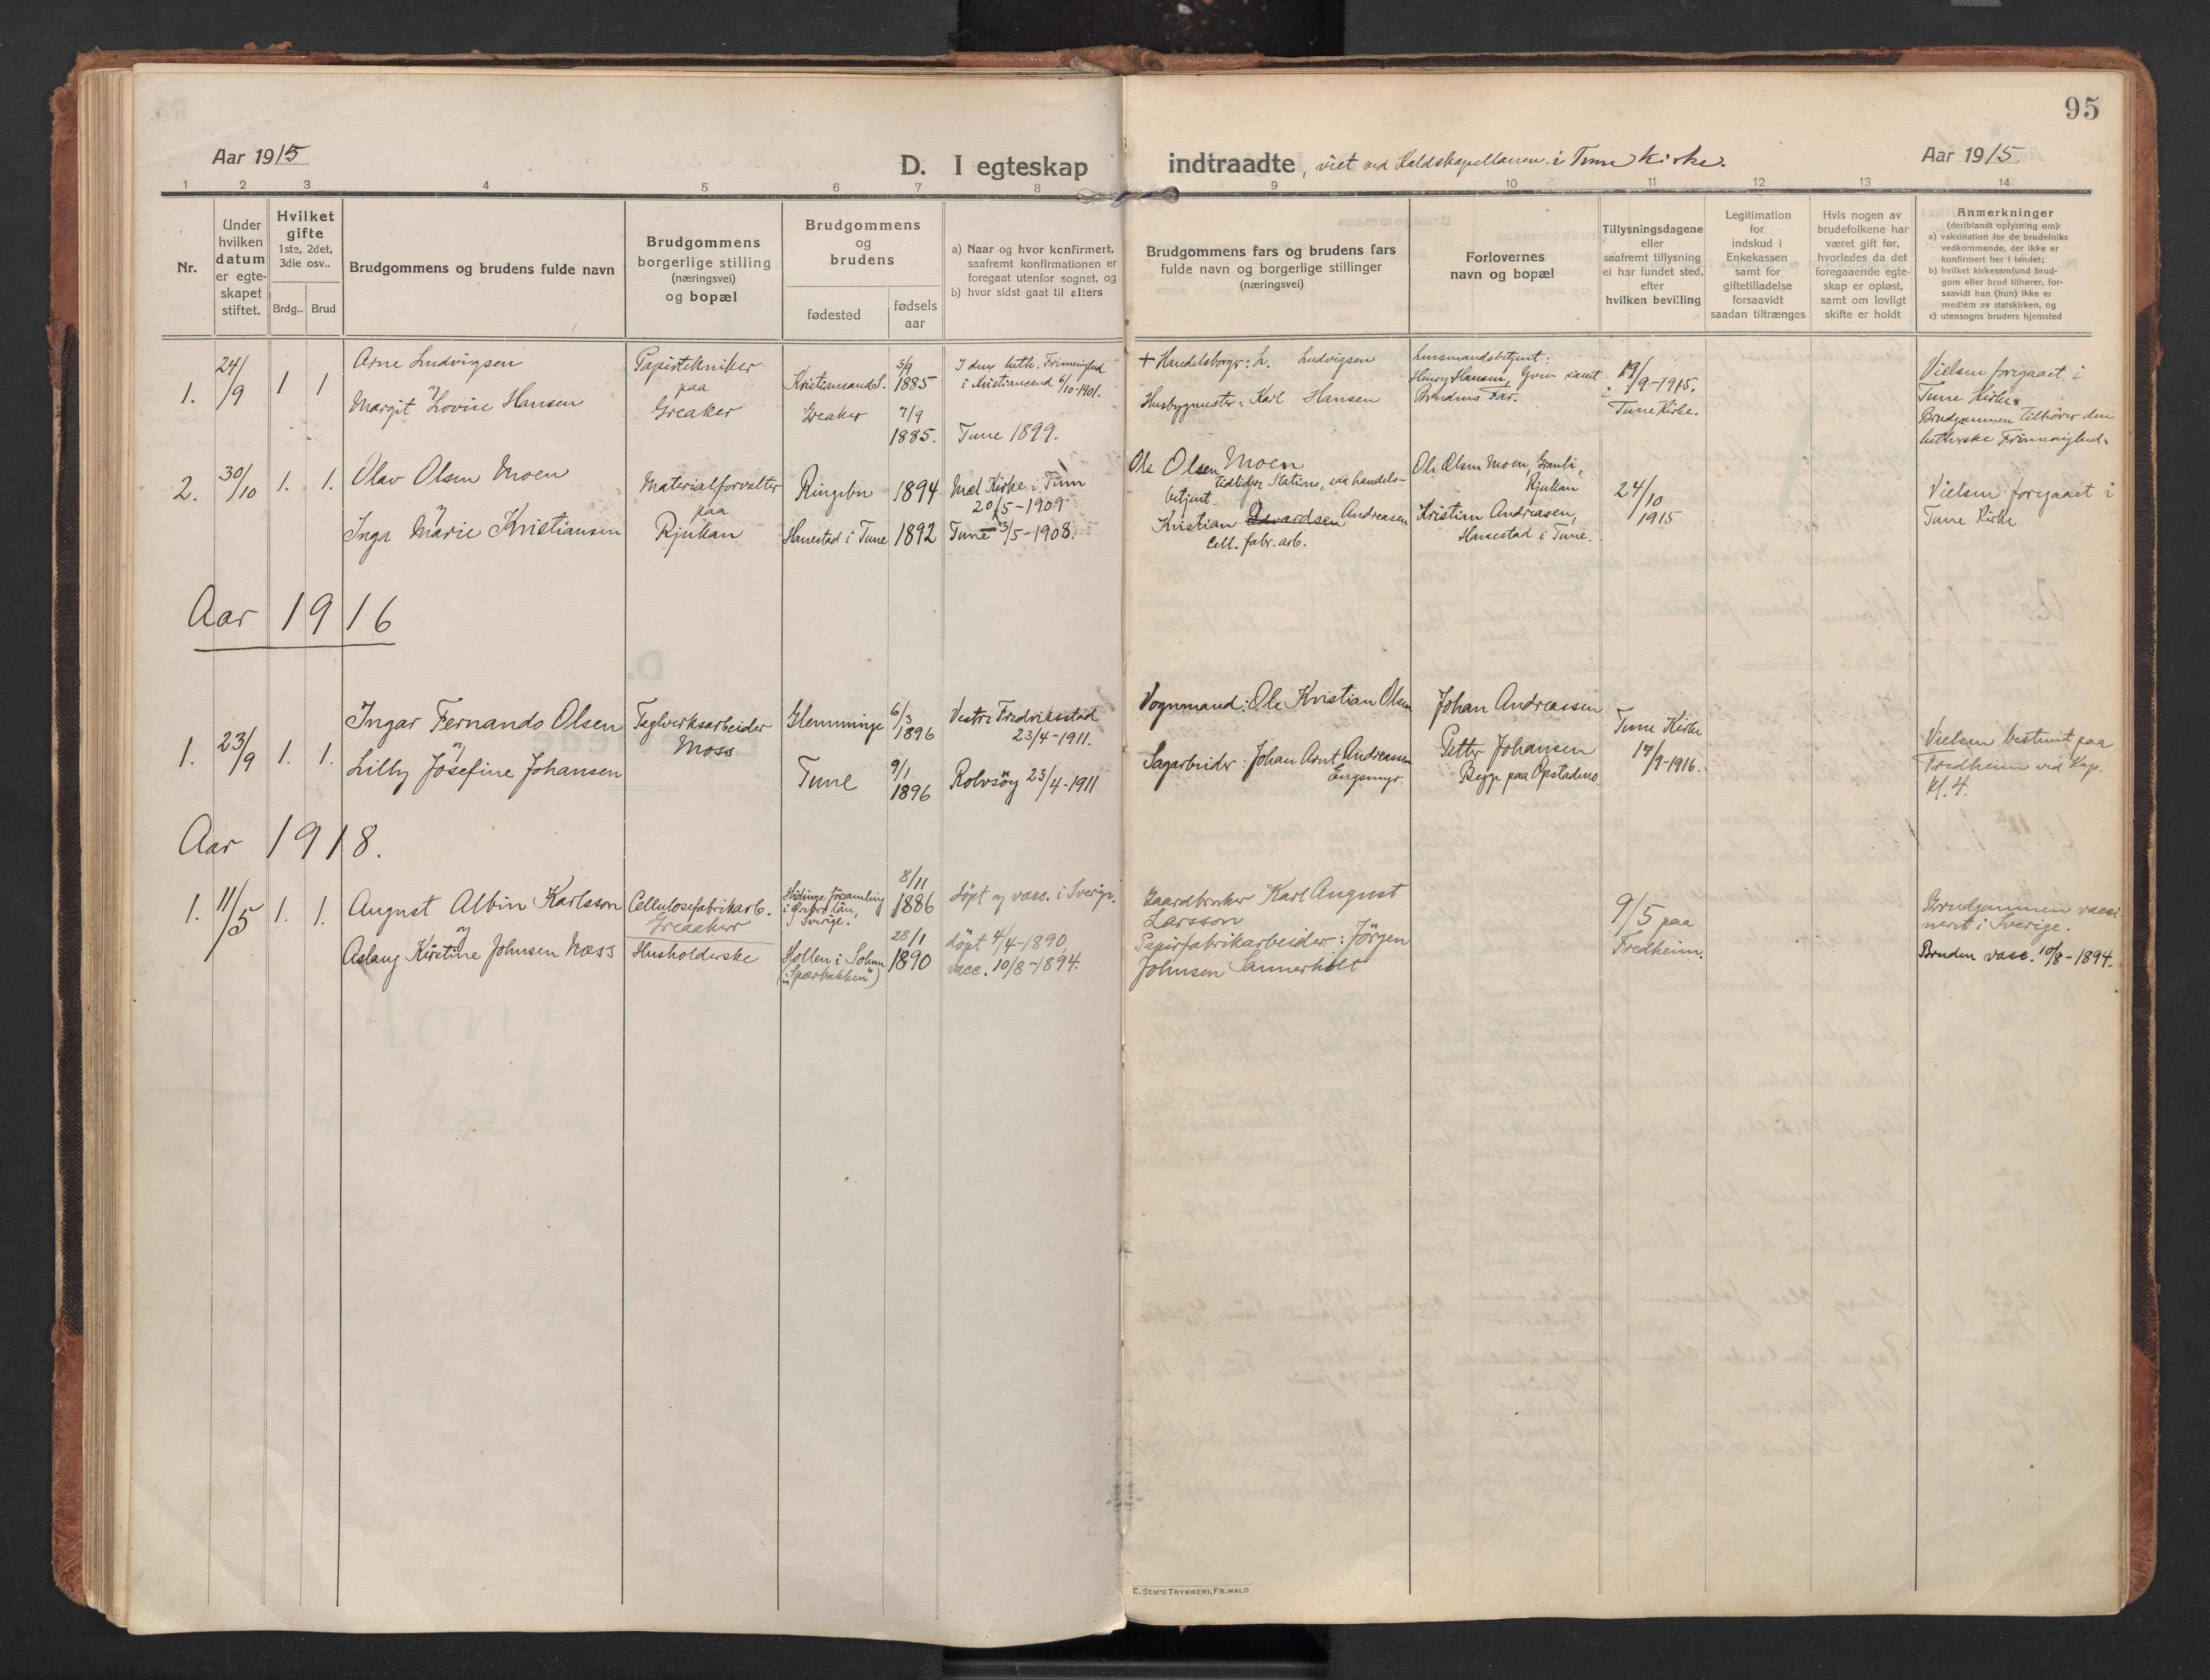 95
Aar 1915
D. I egteskap indtraadte, viet ved Kaldskapellanen i Tune Kirke.
Aar 1915.
1 2 3 4 5 6 7 8 9 10 11 12 13 14
Nr.
Under
hvilken
datum
er egte-
skapet
stiftet.
Hvilket
gifte
1ste, 2det,
3die osv..
Brdg.. Brud
Brudgommens og brudens fulde navn
Brudgommens
borgerlige stilling
(næringsvei)
og bopæl
Brudgommens
og
brudens
fødested
fødsels
aar
a) Naar og hvor konfirmert,
saafremt konfirmationen er
foregaat utenfor sognet, og
b) hvor sidst gaat til alters
Brudgommens fars og brudens fars
fulde navn og borgerlige stillinger
(næringsvei)
Forlovernes
navn og bopæl
Tillysningsdagene
eller
saafremt tillysning
ei har fundet sted,
efter
hvilken bevilling
Legitimation
for
indskud i
Enkekassen
samt for
giftetilladelse
forsaavidt
saadan tiltrænges
Hvis nogen av
brudefolkene har
været gift før,
hvorledes da det
foregaaende egte-
skap er opløst,
samt om lovligt
skifte er holdt
Anmerkninger
(deriblandt oplysning om):
a) vaksination for de brudefolks
vedkommende, der ikke er
konfirmert her i landet;
b) hvilket kirkesamfund brud-
gom eller brud tilhører, for-
saavidt han (hun) ikke er
medlem av statskirken, og
c) utensogns bruders hjemsted
1.
24/9
1 1
Arne Ludvigsen
og
Margit Lovise Hansen
Papirtekniker
paa
Greaker
Kristiansand S.
Greaker
3/9
1885
7/9
1885.
I den luth. Frimenighed
i Kristiansand 6/10-1901.
Tune 1899.
+ Handelsborger: L. Ludvigsen
Husbygmester: Karl Hansen
Lensmandsbetjent:
Henry Hansen, Greaker samt
Brudens Far.
19/9-1915.
i
Tune Kirke.
Vielsen foregaaet i
Tune Kirke.
Brudgommen tilhører den
lutherske Frimenighed.
2.
30/10
1. 1.
Olav Olsen Moen
og
Inga Marie Kristiansen
Materialforvalter
paa
Rjukan
Ringebu
Hanestad i Tune
1894
1892
Mæl Kirke i Tinn
20/5-1909
Tune 3/5-1908.
Ole Olsen Moen
tidligere Stations, nu handels-
betjent.
Kristian Edvardsen Andreasen
Cell. fabr. arb.
Ole Olsen Moen, Granli,
Rjukan
Kristian Andreasen,
Hanestad i Tune.
24/10
1915.
Vielsen foregaaet i
Tune Kirke
Aar 1916
1.
23/9
1. 1.
Ingar Fernando Olsen
og
Lilly Josefine Johansen
Teglverksarbeider
Moss
Glemminge
Tune
6/3
1896
9/1
1896
Vestre Fredriksstad
23/4-1911.
Rolvsöy 23/4-1911
Vognmand: Ole Kristian Olsen
Sagarbeider: Johan Arnt Andreassen
Engsmyr.
Johan Andreassen
Petter Johansen
Begge paa Opstadmo.
Tune Kirke
17/9-1916.
Vielsen bestemt paa
Fredheim ved Kap.
Kl. 4.
Aar 1918.
1.
11/5
1. 1.
August Albin Karlsson
og
Aslaug Kirstine Johnsen Næss
Cellulosefabrikarb.
Greaaker
Husholderske
Hidinge församling
i Örebro län,
Sverige.
Hollen i Sohum
(i "Spærbakken")
8/11
1886
28/1
1890
döpt og vacc. i Sverige.
döpt 4/4-1890,
vacc. 10/8-1894.
Gaardbruker Karl August
Larsson
Papirfabrikarbeider: Jörgen
Johnsen Sannerholt
9/5 paa
Fredheim.
Brudgommen vacci
nert i Sverige.
Bruden vacc. 10/8-1894.
E. SEM'S TRYKKERI, FR.HALD